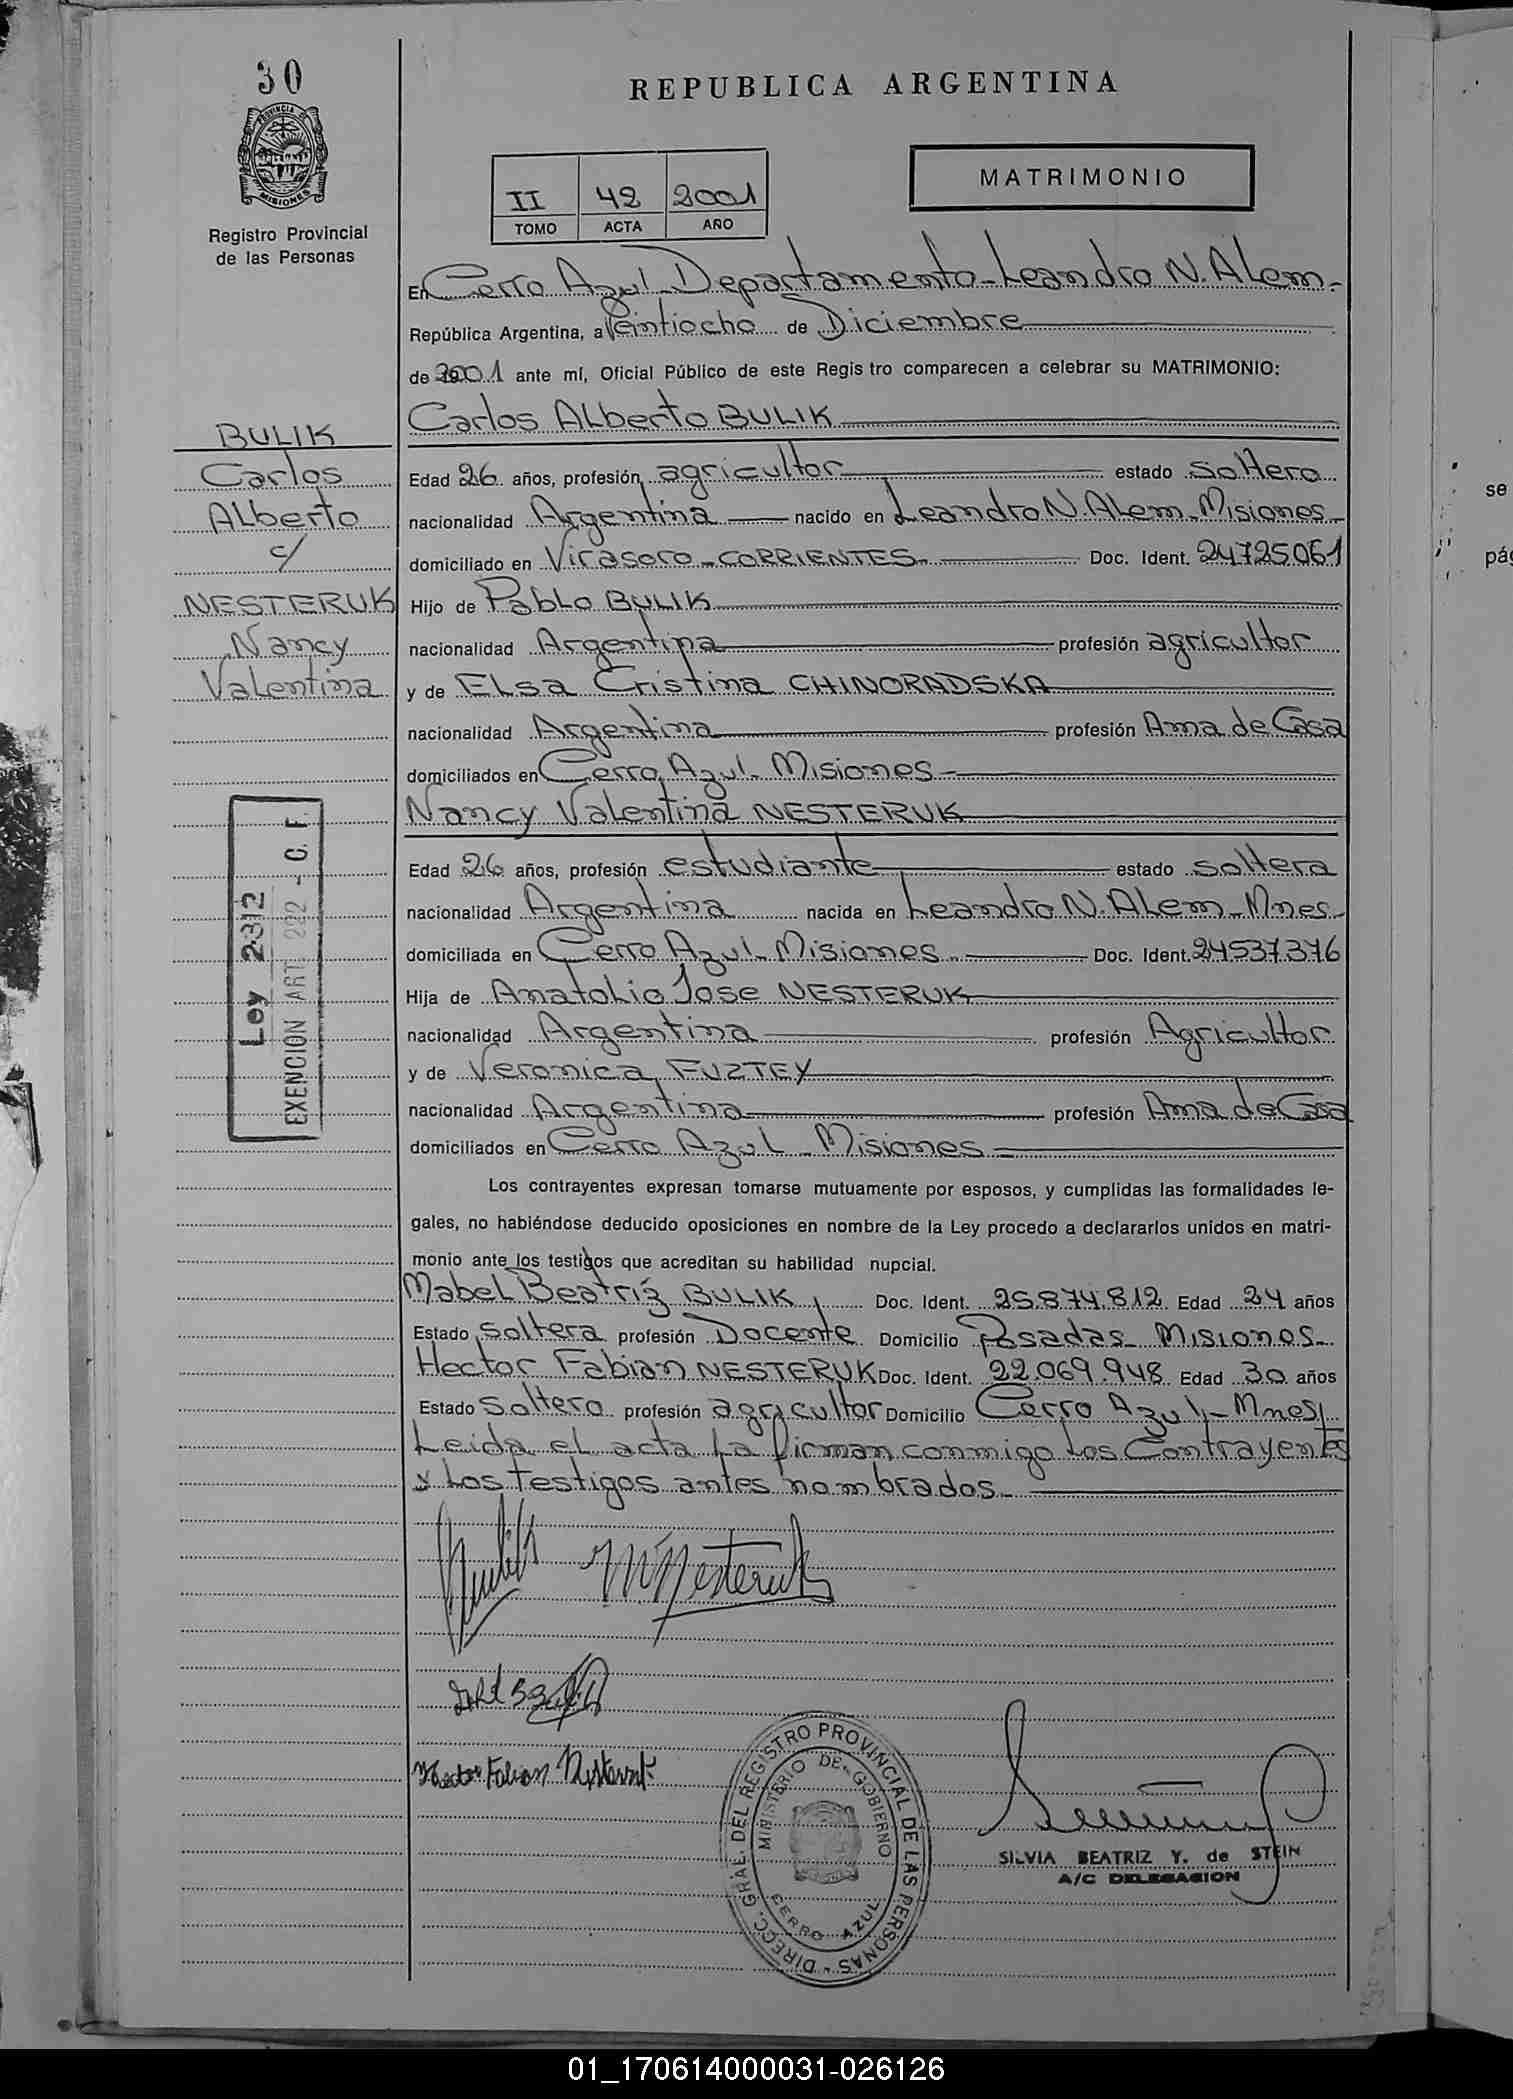 30
PROVINCIA DE
MISIONES
Registro Provincial
de las Personas
REPUBLICA ARGENTINA
MATRIMONIO
II 42 2001
TOMO ACTA AÑO
En Cerro Azul - Departamento - Leandro N. Alem -
República Argentina, a Veintiocho de Diciembre
de 2001 ante mí, Oficial Público de este Regis tro comparecen a celebrar su MATRIMONIO:
Carlos Alberto BULIK
Edad 26 años, profesión agricultor estado soltero
nacionalidad Argentina nacido en Leandro N. Alem - Misiones
domiciliado en Virasoro - CORRIENTES - Doc. Ident. 24725061
Hijo de Pablo BULIK
nacionalidad Argentina profesión agricultor
y de Elsa Cristina CHINORADSKA
nacionalidad Argentina profesión Ama de Casa
domiciliados en Cerro Azul - Misiones -
Nancy Valentina NESTERUK
Edad 26 años, profesión estudiante estado soltera
nacionalidad Argentina nacida en Leandro N. Alem - Mnes -
domiciliada en Cerro Azul - Misiones - Doc. Ident. 24537.376
Hija de Anatolio Jose NESTERUK
nacionalidad Argentina profesión Agricultor
y de Veronica FUZTEY
nacionalidad Argentina profesión Ama de Casa
domiciliados en Cerro Azul - Misiones -
Los contrayentes expresan tomarse mutuamente por esposos, y cumplidas las formalidades le-
gales, no habiéndose deducido oposiciones en nombre de la Ley procedo a declararlos unidos en matri-
monio ante los testigos que acreditan su habilidad nupcial.
Mabel Beatríz BULIK Doc. Ident. 25.874.812 Edad 24 años
Estado soltera profesión Docente Domicilio Posadas - Misiones -
Hector Fabian NESTERUK Doc. Ident. 22.069.948 Edad 30 años
Estado soltero profesión agricultor Domicilio Cerro Azul - Mnes
Leida el acta la firman conmigo los Contrayentes
y los testigos antes nombrados -
BULIK
Carlos
Alberto
c/
NESTERUK
Nancy
Valentina
Ley 2312
EXENCION ART. 292 - C. F.
Nesteruk
Hector Fabian Nesteruk
DIRECC. GRAL. DEL REGISTRO PROVINCIAL DE LAS PERSONAS -
MINISTERIO DE GOBIERNO
CERRO AZUL
SILVIA BEATRIZ Y. de STEIN
A/C DELEGACION
se
pág
01_170614000031-026126